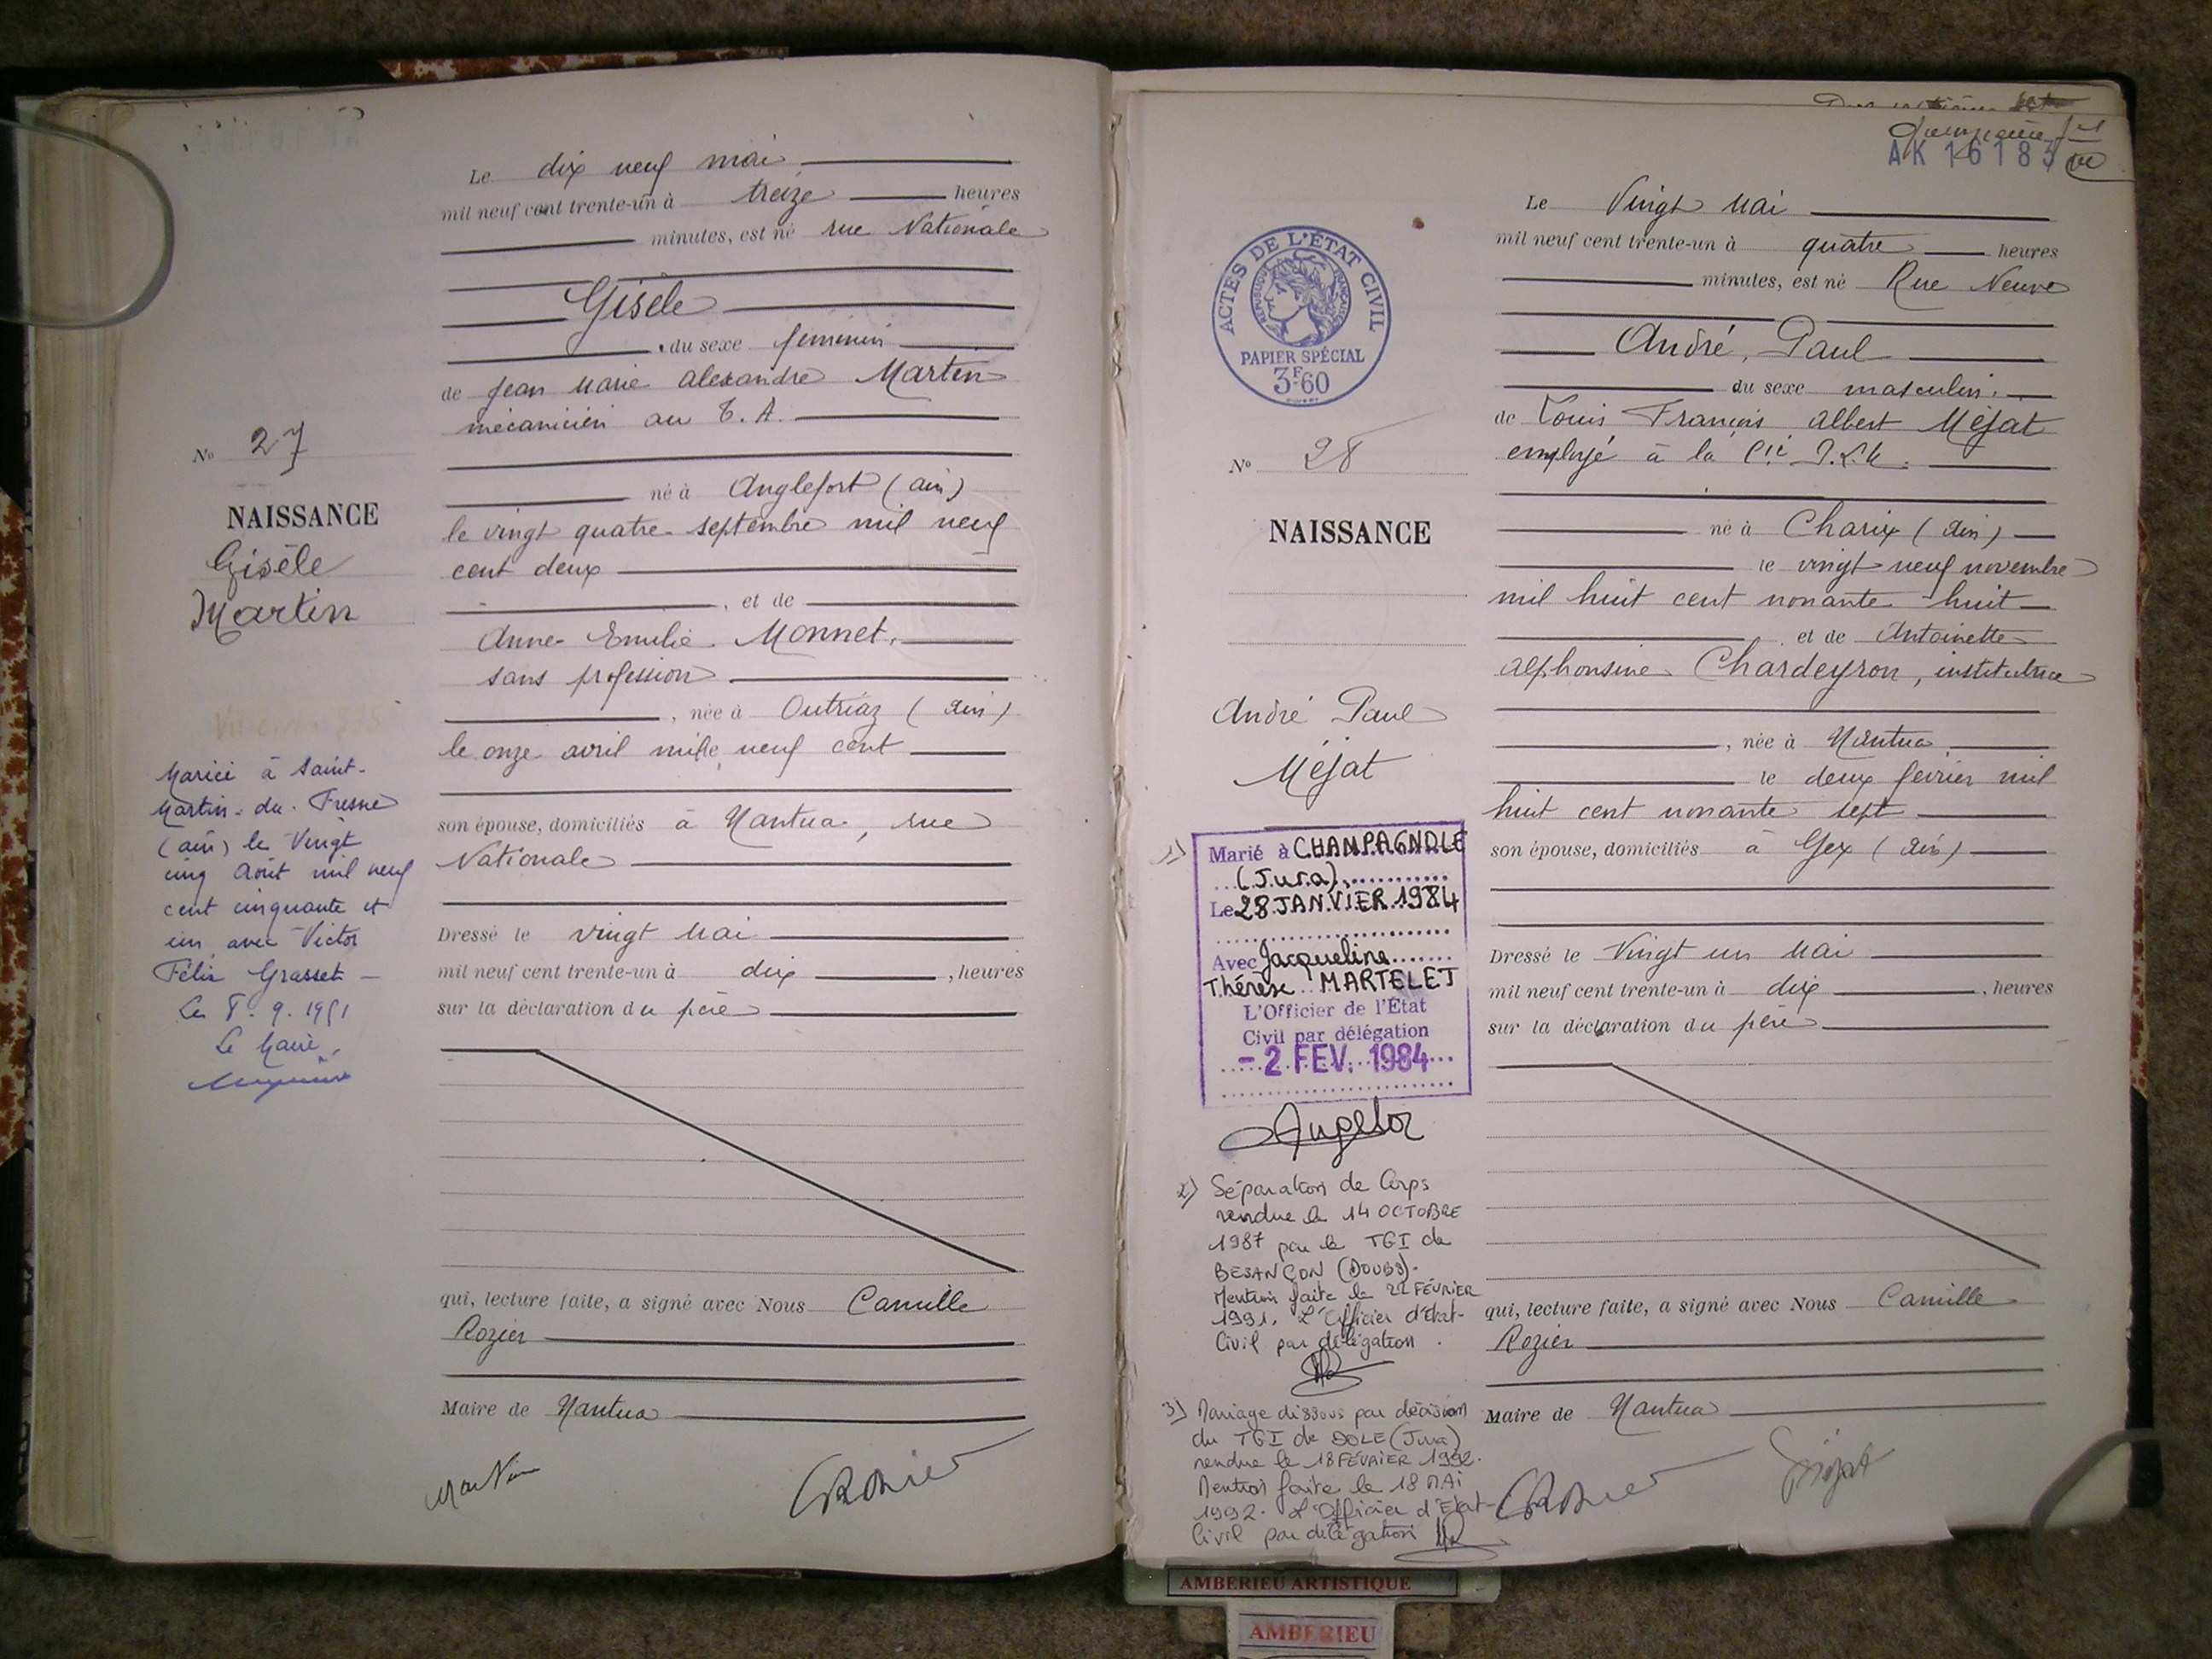 Le dix neuf mai
mil neuf cent trente-un à treize heures
minutes, est né rue Nationale
Gisèle
du sexe féminin
de Jean Marie Alexandre Martin
mécanicien au T. A.
No 27
né à Anglefort (Ain)
NAISSANCE
Gisèle
Martin
le vingt quatre septembre mil neuf
cent deux
, et de
Anne Emilie Monnet,
sans profession
, née à Outriaz (Ain)
le onze avril mille neuf cent
son épouse, domiciliés à Nantua, rue
Nationale
Dressé le vingt Mai
mil neuf cent trente-un à dix , heures
sur la déclaration du père
Mariée à Saint-
Martin-du-Fresne
(Ain) le Vingt
cinq Août mil neuf
cent cinquante et
un avec Victor
Félix Grasset
Le 8. 9. 1951
Le Maire,
qui, lecture faite, a signé avec Nous Camille
Rozier
Maire de Nantua
Martin
CRozier
AK 16183
Le Vingt Mai
mil neuf cent trente-un à quatre heures
minutes, est né Rue Neuve
André, Paul
du sexe masculin.
de Louis François Albert Méjat
employé à la Cie P.L.M.
ACTES DE L'ÉTAT CIVIL
RÉPUBLIQUE FRANÇAISE
PAPIER SPÉCIAL
3F60
No 28
NAISSANCE
André Paul
Méjat
né à Charix (Ain)
le vingt neuf novembre
mil huit cent nonante huit
et de Antoinette
Alphonsine Chardeyron, institutrice
, née à Nantua
le deux février mil
huit cent nonante sept
son épouse, domiciliés à Gex (Ain)
Dressé le Vingt un Mai
mil neuf cent trente-un à dix , heures
sur la déclaration du père
1)
Marié à CHAMPAGNOLE
(Jura)
Le 28 JANVIER 1984
Avec Jacqueline
Thérèse MARTELET
L'Officier de l'État
Civil par délégation
- 2 FEV. 1984
2) Séparation de Corps
rendue le 14 OCTOBRE
1987 par le TGI de
BESANÇON (DOUBS).
Mention faite le 22 FÉVRIER
1991. L'Officier d'État-
Civil par délégation.
3) Mariage dissous par décision
du TGI de DOLE (Jura)
rendue le 18 FÉVRIER 1992.
Mention faite le 18 MAI
1992. L'Officier d'État-
Civil par délégation
qui, lecture faite, a signé avec Nous Camille
Rozier
Maire de Nantua
CRozier
Méjat
AMBERIEU ARTISTIQUE
AMBERIEU